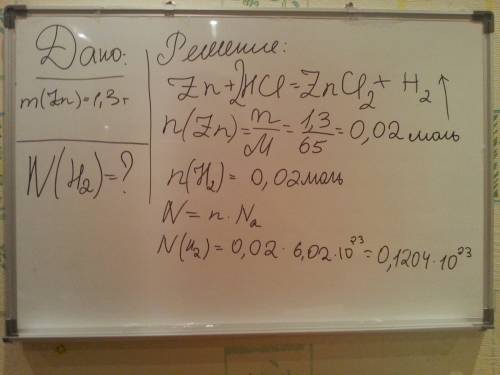 Дано:
m(Zn)=1,3г
N(H₂)=?
Решение:
Zn+2HCl=ZnCl₂+H₂↑
n(Zn)=m/M=1,3/65=0,02моль
n(H₂)=0,02моль
N=n·Na
N(H₂)=0,02·6,02·10²³=0,1204·10²³